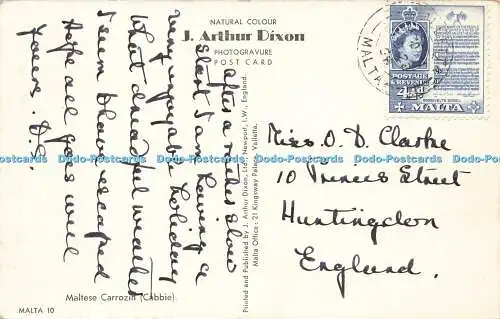 NATURAL COLOUR
J. Arthur Dixon
PHOTOGRAVURE
POST CARD
after a rather slow
start I am having a
very enjoyable holiday
What dreadful weather
I seem to have escaped
Hope all goes well
Yours. D.S.
Maltese Carrozin (Cabbie).
MALTA 10
Printed and Published by J. Arthur Dixon, Ltd., Newport, I.W., England.
Malta Office: 21 Kingsway Palace, Valletta.
MALTA
POSTAGE
& REVENUE
4½d
MALTA
Miss O. D. Clarke
10 Princes Street
Huntingdon
England.
Dodo-Postcards Dodo-Postcards Dodo-Postcards Dodo-Postcards Dodo-Postcards Dodo-Postcards